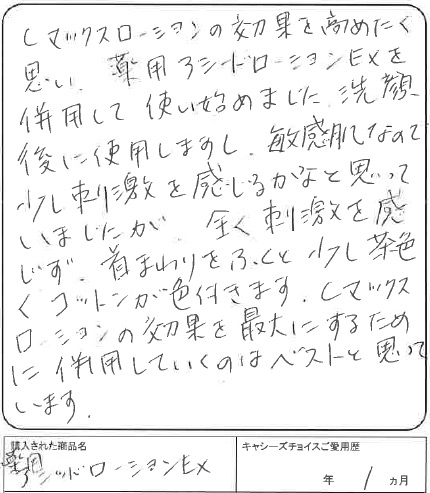 Cマックスローションの効果を高めたく
思い、薬用アシードローションEXを
併用して使い始めました。洗顔
後に使用しますし、敏感肌なので
少し刺激を感じるかなと思って
いましたが 全く刺激を感
じず、首まわりをふくと少し茶色
くコットンが色付きます。Cマックス
ローションの効果を最大にするため
に併用していくのはベストと思って
います。
購入された商品名
薬用アシッドローションEX
キャシーズチョイスご愛用歴
年 1ヵ月